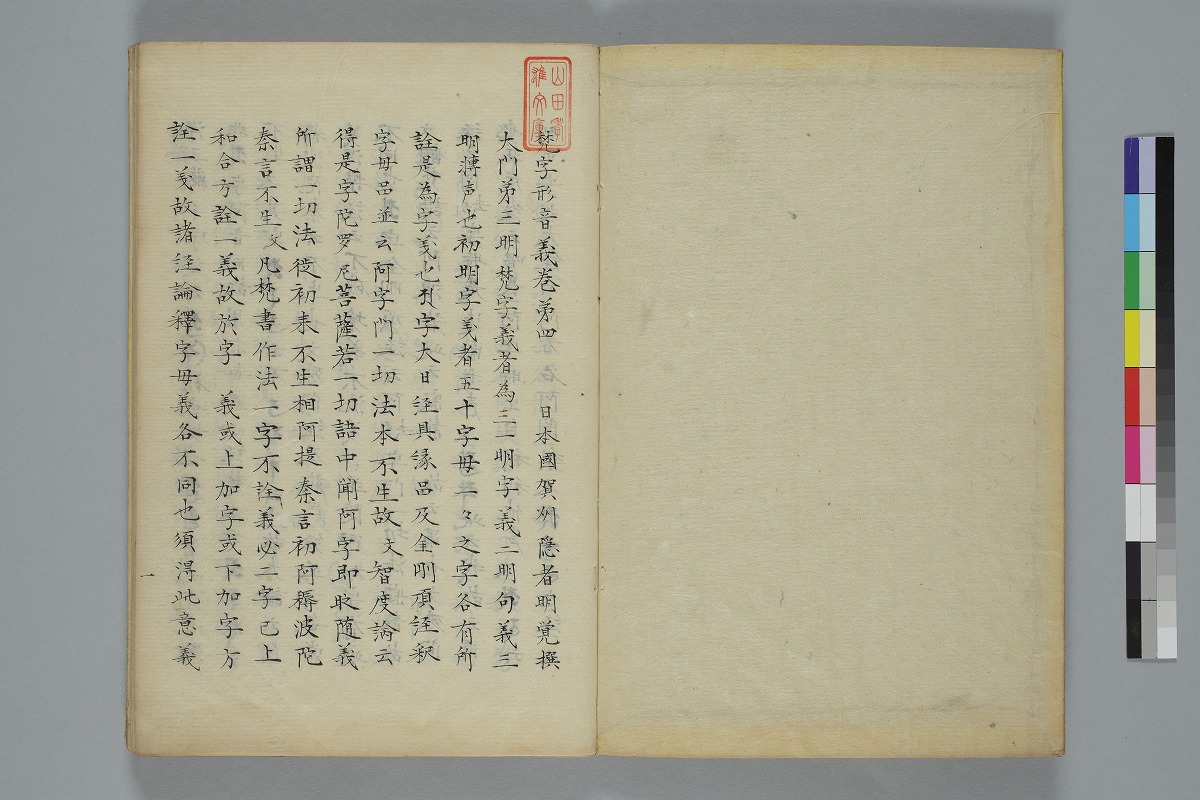 山田孝
雄文庫
梵字形音義巻苐四　日本國賀州隐者明覚撰
大門苐三明梵字義者為三一明字義二明句義三
明轉声也初明字義者五十字毋一々之字各有所
詮是為字義也引字大日経具縁品及金剛頂経釈
字毋品並云阿字門一切法本不生故文智度論云
得是字陀罗尼菩薩若一切語中聞阿字即時随義
所謂一切法従初来不生相阿提秦言初阿耨波陀
秦言不生文凡梵書作法一字不詮義必二字已上
和合方詮一義故於字　義或上加字或下加字方
詮一義故諸経論釋字毋義各不同也須淂此意義
一